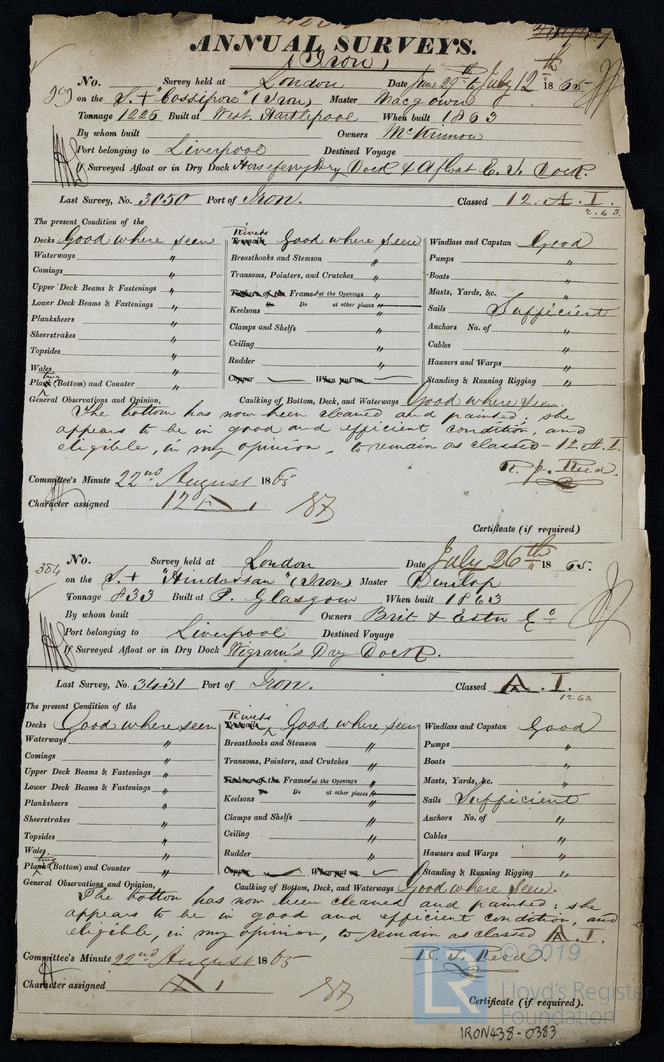 ANNUAL SURVEYS.
(Iron)
No. Survey held at London Date June 29th to July 12th 1865
on the S.S. "Cossipore" (Iron) Master Macgown
Tonnage 1226 Built at West Hartlepool When built 1863
By whom built Owners McKinnon
Port belonging to Liverpool Destined Voyage
If Surveyed Afloat or in Dry Dock Horseferry Dry Dock & Afloat E. I. Dock.
Last Survey, No. 3050 Port of Iron. Classed 12. A. I.
2.63
The present Condition of the
Decks Good where seen Rivets Good where seen Windlass and Capstan Good
Waterways " Breasthooks and Stemson " Pumps "
Comings " Transoms, Pointers, and Crutches " Boats "
Upper Deck Beams & Fastenings " Timbers of the Frame at the Openings " Masts, Yards, &c. "
Lower Deck Beams & Fastenings " Keelsons Do Do at other places " Sails Sufficient
Planksheers " Clamps and Shelfs " Anchors No. of "
Sheerstrakes " Ceiling " Cables "
Topsides " Rudder " Hawsers and Warps "
Wales " Copper When put on Standing & Running Rigging "
Plating (Bottom) and Counter "
General Observations and Opinion, Caulking of Bottom, Deck, and Waterways Good where seen.
The bottom has now been cleaned and painted; she
appears to be in good and efficient condition, and
eligible, in my opinion, to remain as classed - 12. A. I.
R. J. Reed.
Committee's Minute 22nd August 1865
Character assigned 12 A 1
Certificate (if required)
384
No. Survey held at London Date July 26th 1865.
on the S.S. "Hindostan" (Iron) Master Dunlop
Tonnage 833 Built at P. Glasgow When built 1863
By whom built Owners Brit & Estn Co
Port belonging to Liverpool Destined Voyage
If Surveyed Afloat or in Dry Dock Wigram's Dry Dock.
Last Survey, No. 3431 Port of Iron. Classed A. I.
12.63
The present Condition of the
Decks Good where seen Rivets Good where seen Windlass and Capstan Good
Waterways " Breasthooks and Stemson " Pumps "
Comings " Transoms, Pointers, and Crutches " Boats "
Upper Deck Beams & Fastenings " Timbers of the Frame at the Openings " Masts, Yards, &c. "
Lower Deck Beams & Fastenings " Keelsons Do Do at other places " Sails Sufficient
Planksheers " Clamps and Shelfs " Anchors No. of "
Sheerstrakes " Ceiling " Cables "
Topsides " Rudder " Hawsers and Warps "
Wales " Copper When put on Standing & Running Rigging "
Plating (Bottom) and Counter "
General Observations and Opinion, Caulking of Bottom, Deck, and Waterways Good where seen.
The bottom has now been cleaned and painted: she
appears to be in good and efficient condition, and
eligible, in my opinion, to remain as classed A. I.
R. J. Reed.
Committee's Minute 22nd August 1865
Character assigned A 1
Certificate (if required).
LR © 2019
Lloyd's Register
Foundation
IRON438-0383